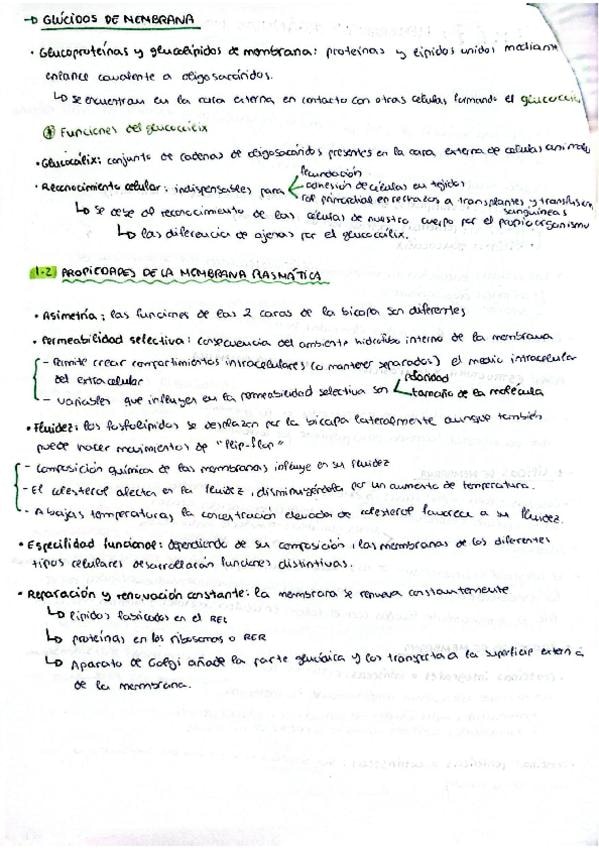 → GLÚCIDOS DE MEMBRANA
· Glucoproteínas y glucolípidos de membrana: proteínas y lípidos unidos mediante
enlance covalente a oligosacáridos.
↳ se encuentran en la cara externa en contacto con otras células formando el glucocálix
* Funciones del glucocálix
· Glucocálix: conjunto de cadenas de oligosacáridos presentes en la cara externa de células animales
· Reconocimiento celular: indispensables para
fecundación
adhesión de células en tejidos
rol primordial en rechazos a transplantes y transfusiones
sanguíneas
↳ se debe al reconocimiento de las células de nuestro cuerpo por el propio organismo
↳ las diferencia de ajenas por el glucocálix.
1.2 PROPIEDADES DE LA MEMBRANA PLASMÁTICA
· Asimetría: las funciones de las 2 caras de la bicapa son diferentes
· Permeabilidad selectiva: consecuencia del ambiente hidrófobo interno de la membrana
- Permite crear compartimientos intracelulares (o mantener separados) el medio intracelular
del extracelular
- Variables que influyen en la permeabilidad selectiva son
polaridad
tamaño de la molécula
· Fluidez: los fosfolípidos se desplazan por la bicapa lateralmente aunque también
puede hacer movimientos de "flip-flop"
- Composición química de las membranas influye en su fluidez
- El colesterol afecta en la fluidez, disminuyéndola por un aumento de temperatura.
- A bajas temperaturas, la concentración elevada de colesterol favorece a su fluidez.
· Especifidad funcional: dependiendo de su composición, las membranas de los diferentes
tipos celulares desarrollarán funciones distintivas.
· Reparación y renovación constante: la membrana se renueva constantemente
↳ lípidos fabricados en el REL
↳ proteínas en los ribosomas o RER
↳ Aparato de Golgi añade la parte glucídica y los transporta a la superficie externa
de la membrana.